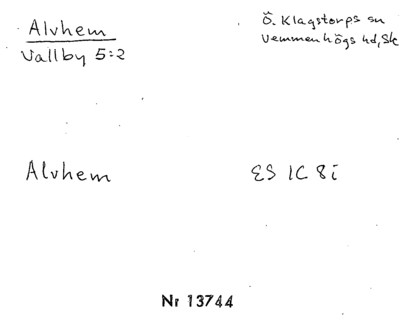 Alvhem
Vallby 5:2
Ö. Klagstorps sn
Vemmenhögs hd, Sk
Alvhem
ES 1C 8i
Nr 13744